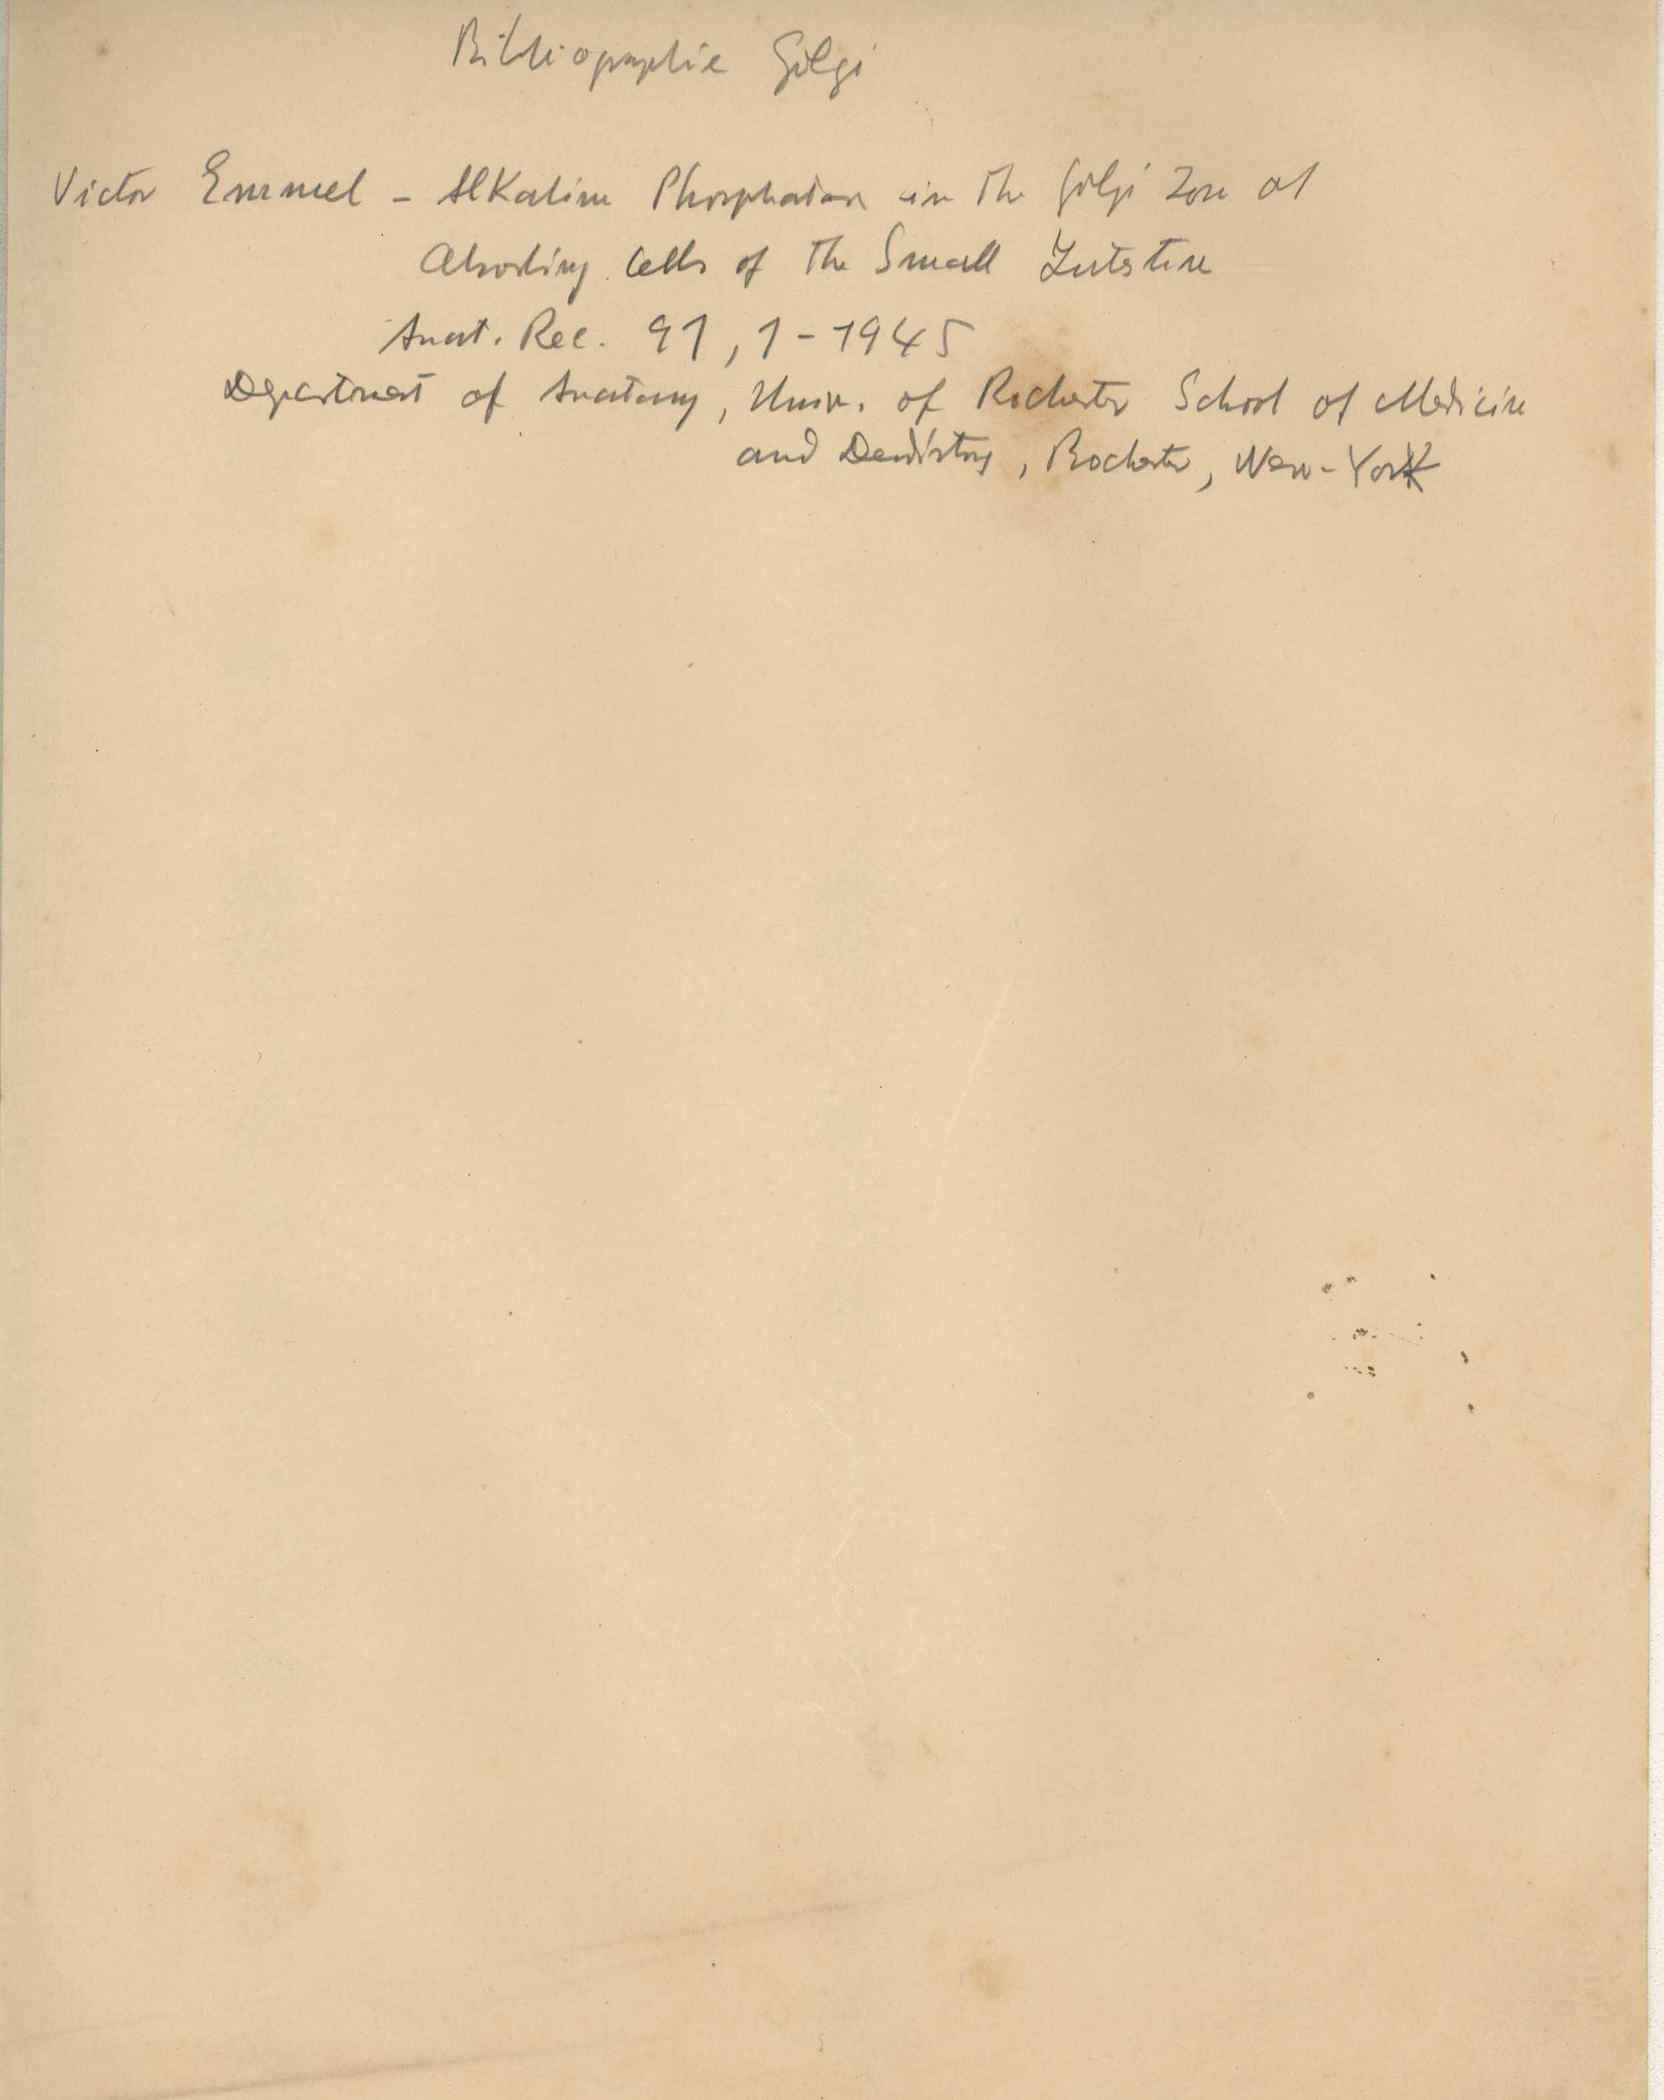 Bibliographie Golgi
Victor Emmel - Alkaline Phosphatase in the Golgi Zone of
Absorbing Cells of the Small Intestine
Anat. Rec. 91, 1-1945
Department of Anatomy, Univ. of Rochester School of Medicine
and Dentistry, Rochester, New-York